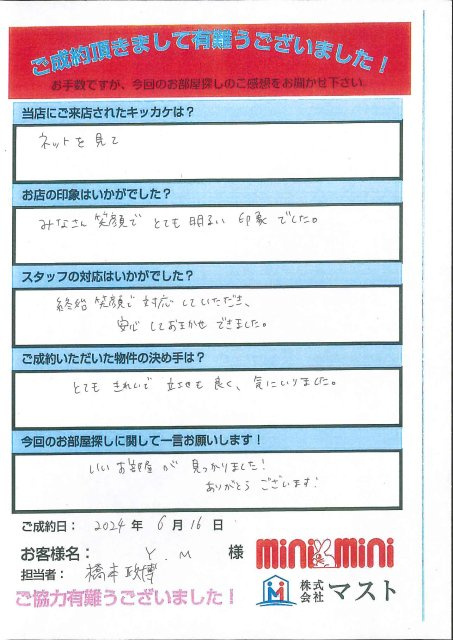 ご成約頂きまして有難うございました！
お手数ですが、今回のお部屋探しのご感想をお聞かせ下さい。
当店にご来店されたキッカケは？
ネットを見て
お店の印象はいかがでした？
みなさん笑顔でとても明るい印象でした。
スタッフの対応はいかがでした？
終始笑顔で対応していただき、
安心しておまかせできました。
ご成約いただいた物件の決め手は？
とてもきれいで立地も良く、気にいりました。
今回のお部屋探しに関して一言お願いします！
いいお部屋が見つかりました！
ありがとうございます！
ご成約日： 2024 年 6 月 16 日
お客様名： Y.M 様
mini mini
担当者： 橋本政博
株式会社 マスト
ご協力有難うございました！